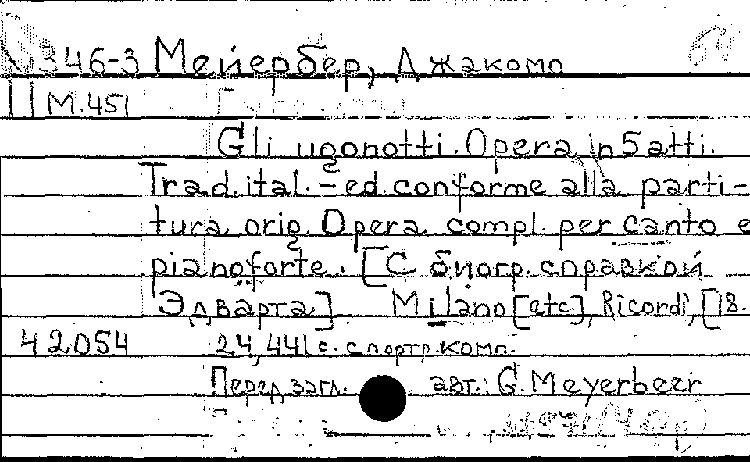 346-3 Мейербер, Джакомо
М.451
Gli ugonotti. Opera in 5 atti.
Trad. ital. - ed. conforme alla parti-
tura orig. Opera compl. per canto e
pianoforte. [С биогр. справкой
Эдварта]. Milano [etc], Ricordi, [18.
42054 24, 441 с. с портр. комп.
Перед загл. авт.: G. Meyerbeer